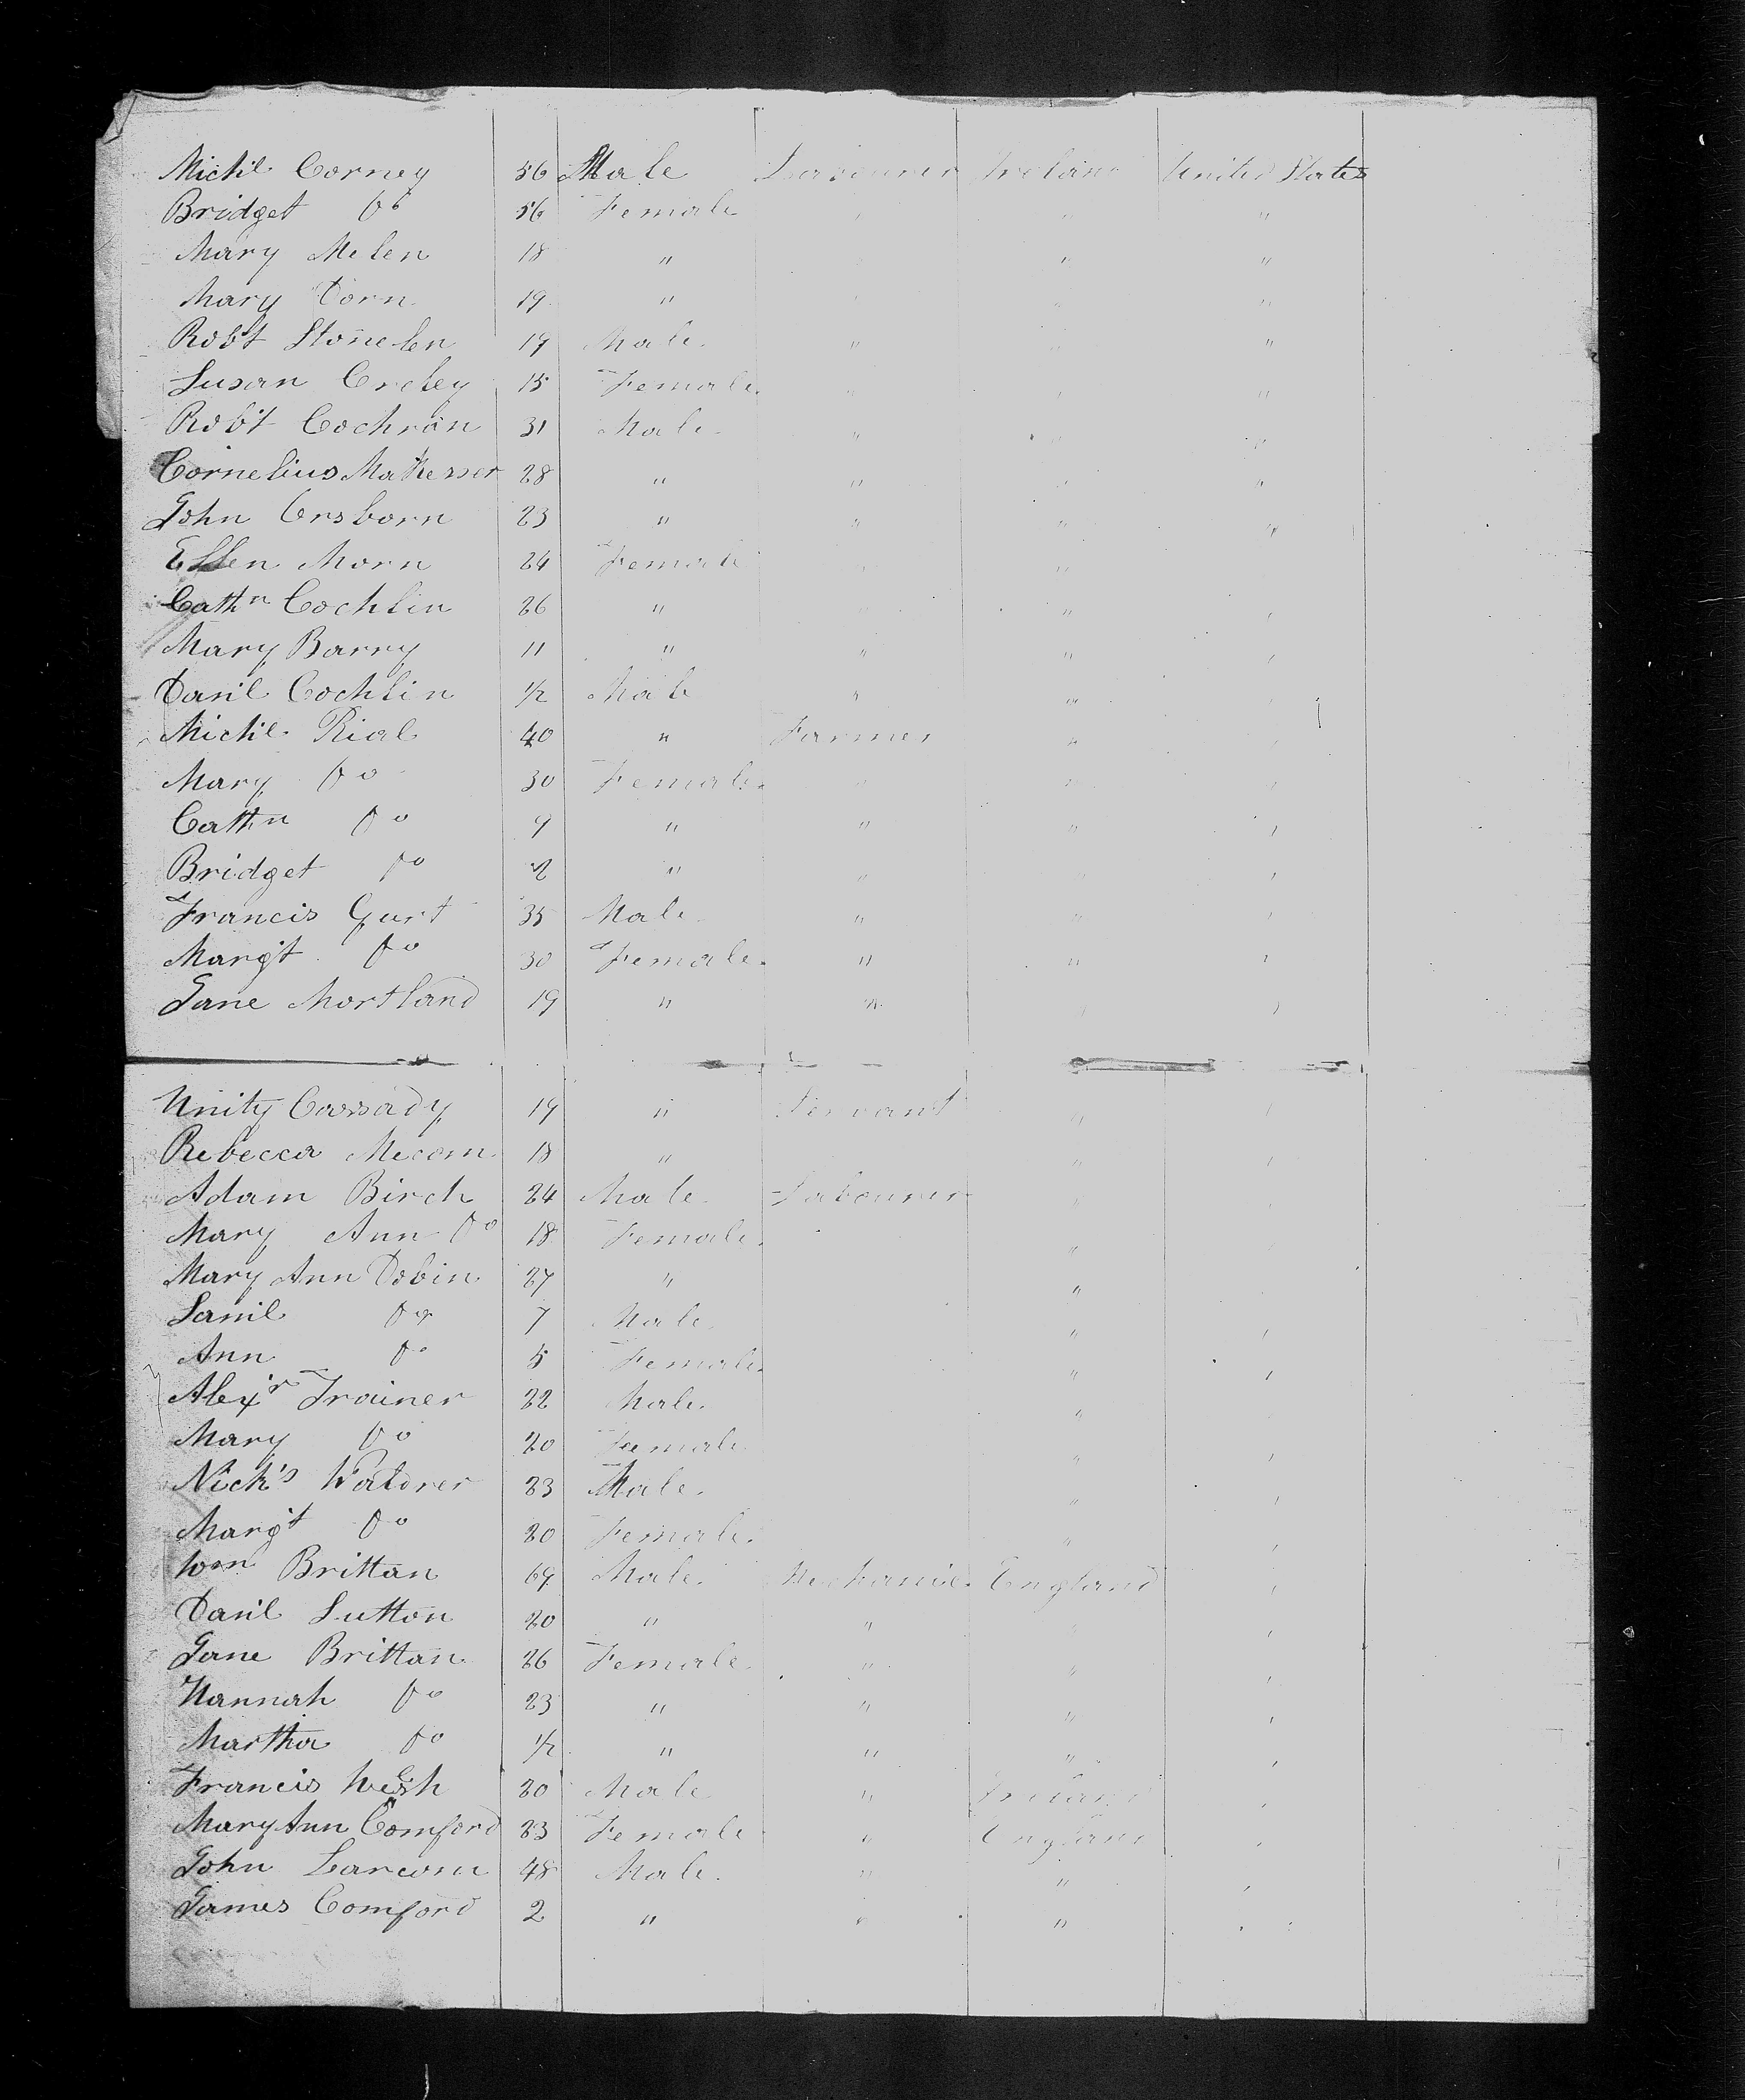 Mich'l Corney 56 Male Labourer Ireland United States
Bridget Do 56 Female " " "
Mary Melen 18 " " "
Mary Dorn 19 " " " "
Rob't Stonelen 19 Male " " "
Susan Croley 15 Female " " "
Rob't Cochran 31 Male " " "
Cornelius 28 " " " "
John Orsborn 23 " " " "
Ellen Morn 24 Female " " "
Cathn Cochlin 26 " " " "
Mary Barry 11 " " " "
Dan'l Cochlin 1/2 Male " " "
Mich'l Rial 40 " Farmer " "
Mary Do 30 Female " " "
Cathn Do 9 " " " "
Bridget Do 2 " " " "
Francis Gurt 35 Male " " "
Marg't Do 30 Female " " "
Jane Mortland 19 " " " "
Unity Cassady 19 " Servant " "
Rebecca Mecom 18 " " "
Adam Birch 24 Male Labourer " "
Mary Ann Do 18 Female "
Mary Ann Dobin 27 " "
Sam'l Do 7 Male " "
Ann Do 5 Female " "
Alexr Trainer 22 Male "
Mary Do 20 Female " "
Nich's Waldrer 23 Male " "
Marg't Do 20 Female " "
Wm Brittan 69 Male Mechanic England "
Dan'l Sutton 20 " " " "
Jane Brittan 26 Female " " "
Hannah Do 23 " " " "
Martha Do 1/2 " " " "
Francis Welsh 20 Male " Ireland "
Mary Ann Comford 23 Female " England "
John Larcom 48 Male " " "
James Comford 2 " " " "